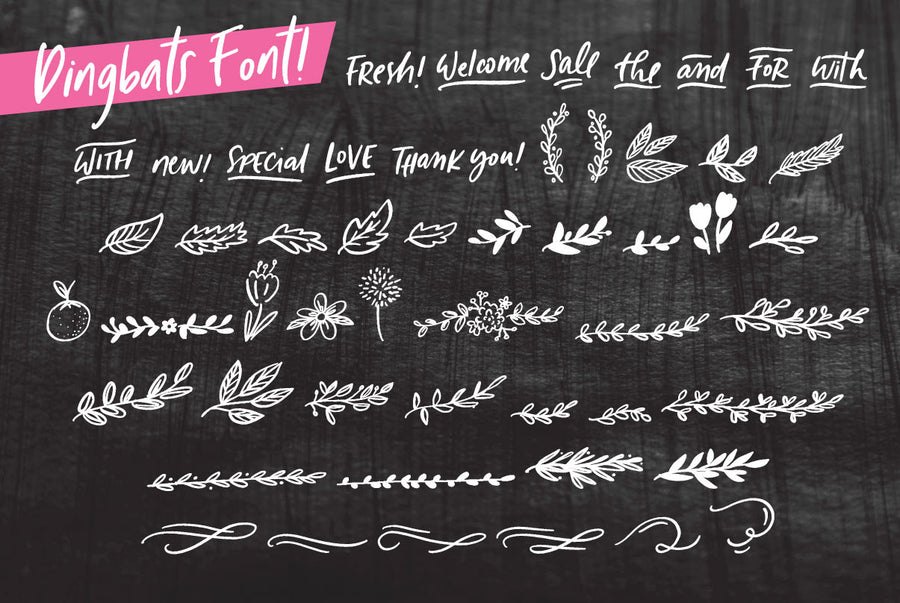 Dingbats Font!
Fresh! Welcome Sale the and FOR with
WITH new! SPECIAL LOVE THANK you!